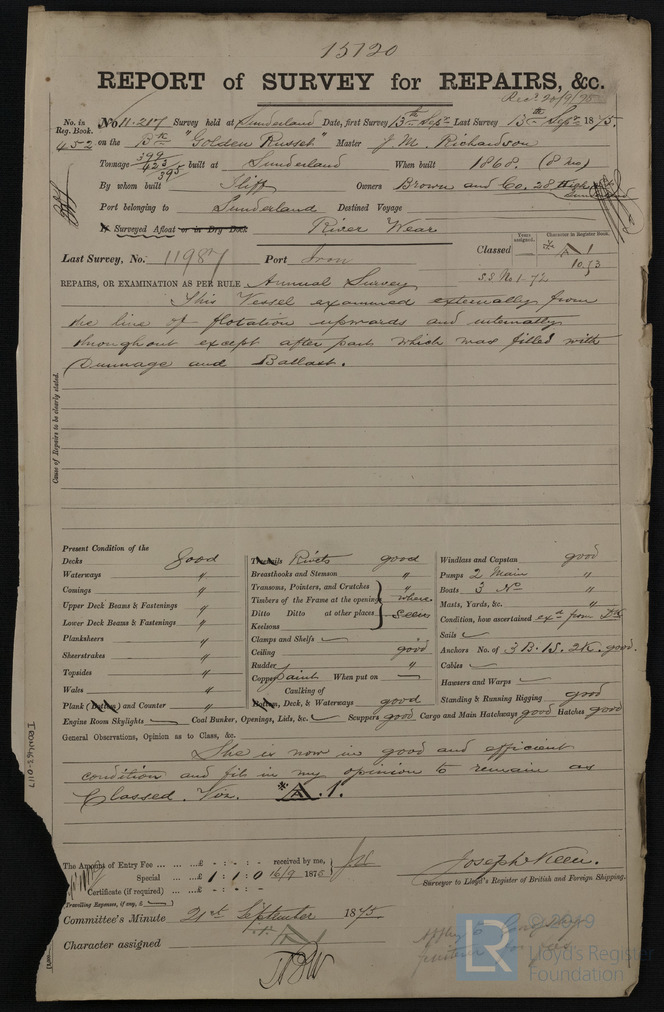 15120
REPORT of SURVEY for REPAIRS, &c.
Recd 20/9/75
No. in Reg. Book. No 11.217 Survey held at Sunderland Date, first Survey 13th Sept. Last Survey 13th Sept. 1875.
452 on the Bk "Golden Russet" Master J. M. Richardson
Tonnage 399 423 395 built at Sunderland When built 1868. (8 mo)
By whom built Stiff Owners Brown and Co. 28 High
Port belonging to Sunderland Destined Voyage
If Surveyed Afloat or in Dry Dock River Wear
Last Survey, No. 11987 Port Iron Classed Years assigned. Character in Register Book. A 1
10.73
S.S. No 1-72
REPAIRS, OR EXAMINATION AS PER RULE Annual Survey
This Vessel examined externally from
the line of flotation upwards and internally
throughout except after part which was filled with
Dunnage and Ballast.
Cause of Repairs to be clearly stated.
Present Condition of the
Decks good
Waterways "
Comings "
Upper Deck Beams & Fastenings "
Lower Deck Beams & Fastenings "
Planksheers "
Sheerstrakes "
Topsides "
Wales "
Plank (Bottom) and Counter "
Treenails Rivets good
Breasthooks and Stemson "
Transoms, Pointers, and Crutches "
Timbers of the Frame at the openings where
Ditto Ditto at other places seen
Keelsons
Clamps and Shelfs
Ceiling good
Rudder "
Copper paint When put on —
Caulking of
Bottom, Deck, & Waterways good
Windlass and Capstan good
Pumps 2 Main "
Boats 3 No "
Masts, Yards, &c. "
Condition, how ascertained exd from Dk
Sails
Anchors No. of 3 B. 1 S. 2 K. good.
Cables
Hawsers and Warps
Standing & Running Rigging good
Engine Room Skylights — Coal Bunker, Openings, Lids, &c. Scuppers good Cargo and Main Hatchways good Hatches good
General Observations, Opinion as to Class, &c.
She is now in good and efficient
condition and fit in my opinion to remain as
Classed. Viz. A.1.
IRON463-0117
The Amount of Entry Fee ... ... ...£ - : - : - received by me,
Special ... ...£ 1 : 1 : 0 16/9 187
Certificate (if required) ...£ - : - : -
Travelling Expenses, if any, £
Joseph Keen.
Surveyor to Lloyd's Register of British and Foreign Shipping.
Committee's Minute 21st September 1875.
Character assigned A
© 2019
LR Lloyd's Register
Foundation